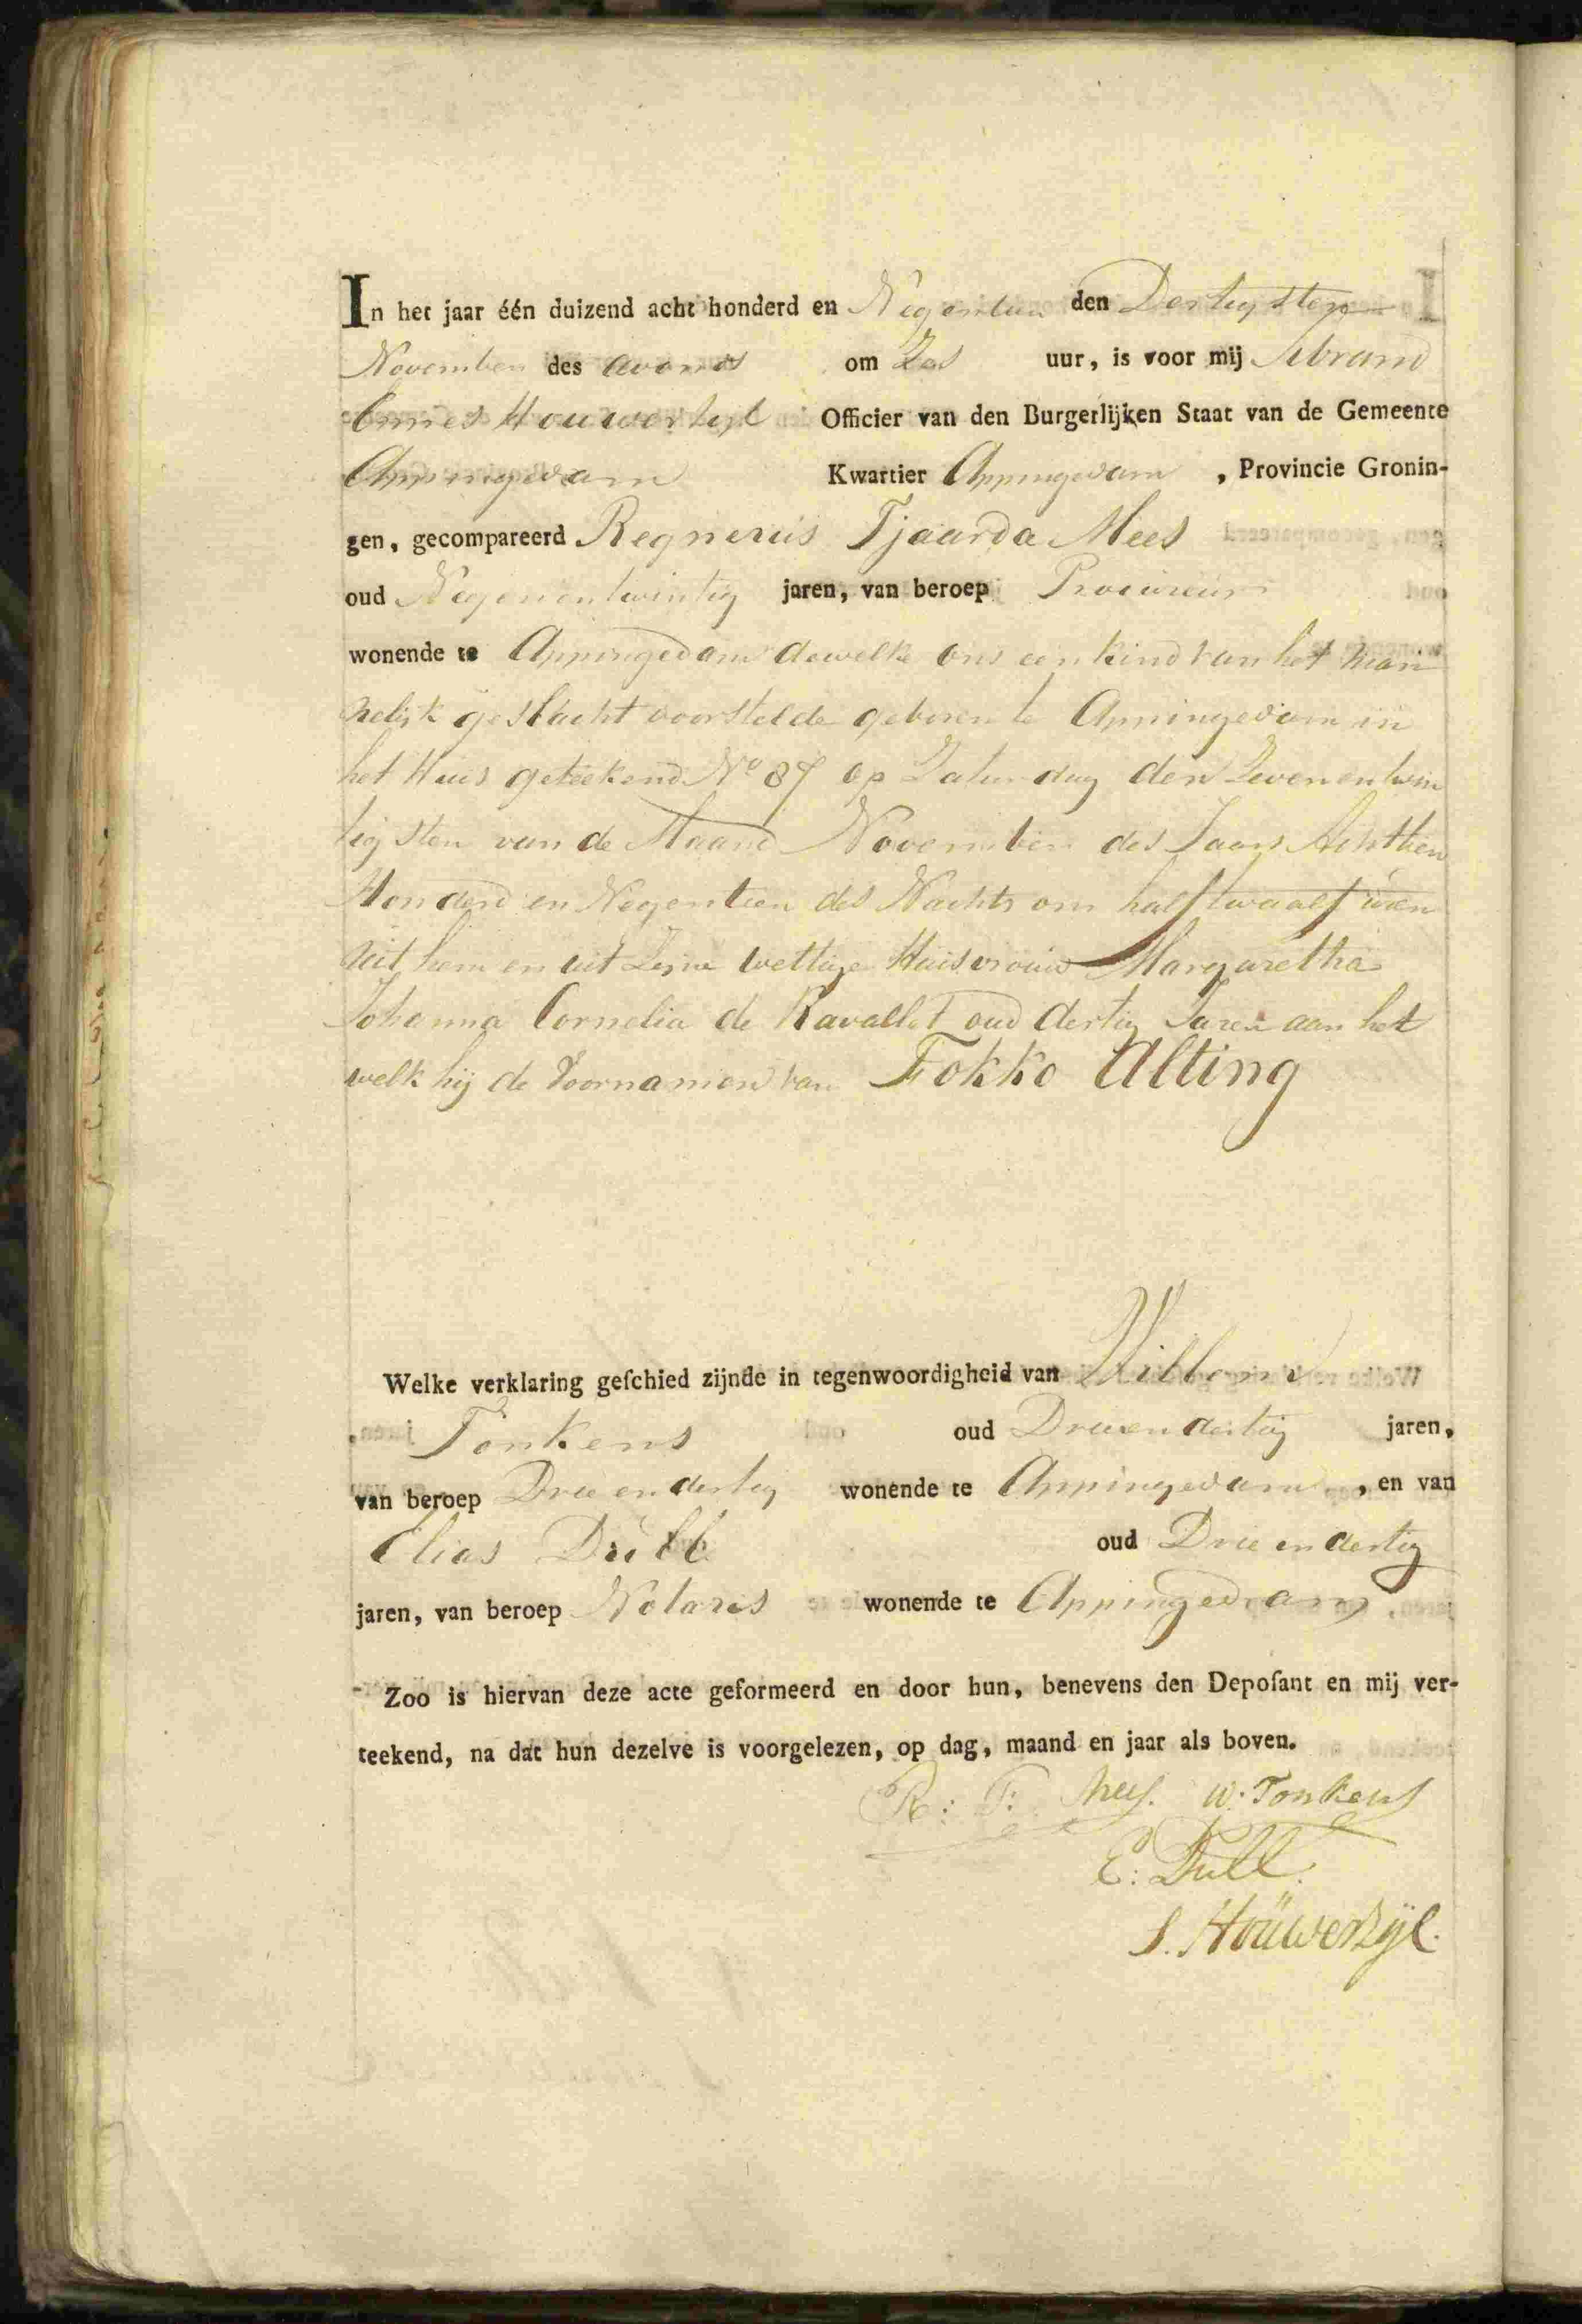 In het jaar één duizend acht honderd en Negentien den Dertigsten
November des avonds om Zes uur, is voor mij Sibrand
Ennes Houwerzyl Officier van den Burgerlijken Staat van de Gemeente
Appingedam Kwartier Appingedam, Provincie Gronin-
gen, gecompareerd Regnerus Tjaarda Mees
oud Negenentwintig jaren, van beroep Procureur
wonende te Appingedam dewelke ons een kind van het man
nelijk geslacht voorstelde geboren te Appingedam in
het Huis getekend No 87 op Saturdag den Zevenentwin
tigsten van de Maand November des Jaars Achttien
Honderd en Negentien des Nachts om half twaalf uren
uit hem en uit Zijne wettige Huisvrouw Margaretha
Johanna Cornelia de Ravallet oud dertig Jaren aan het
welk hij de Voornamen van Fokko Alting
Welke verklaring geschied zijnde in tegenwoordigheid van Willem
Tonkens oud Drieendertig jaren,
van beroep Drie en dertig wonende te Appingedam, en van
Elias Dull oud Drie en dertig
jaren, van beroep Notaris wonende te Appingedam
Zoo is hiervan deze acte geformeerd en door hun, benevens den Deposant en mij ver-
teekend, na dat hun dezelve is voorgelezen, op dag, maand en jaar als boven.
R: T: Mees. W. Tonkens
E: Dull.
S. Houwerzijl.